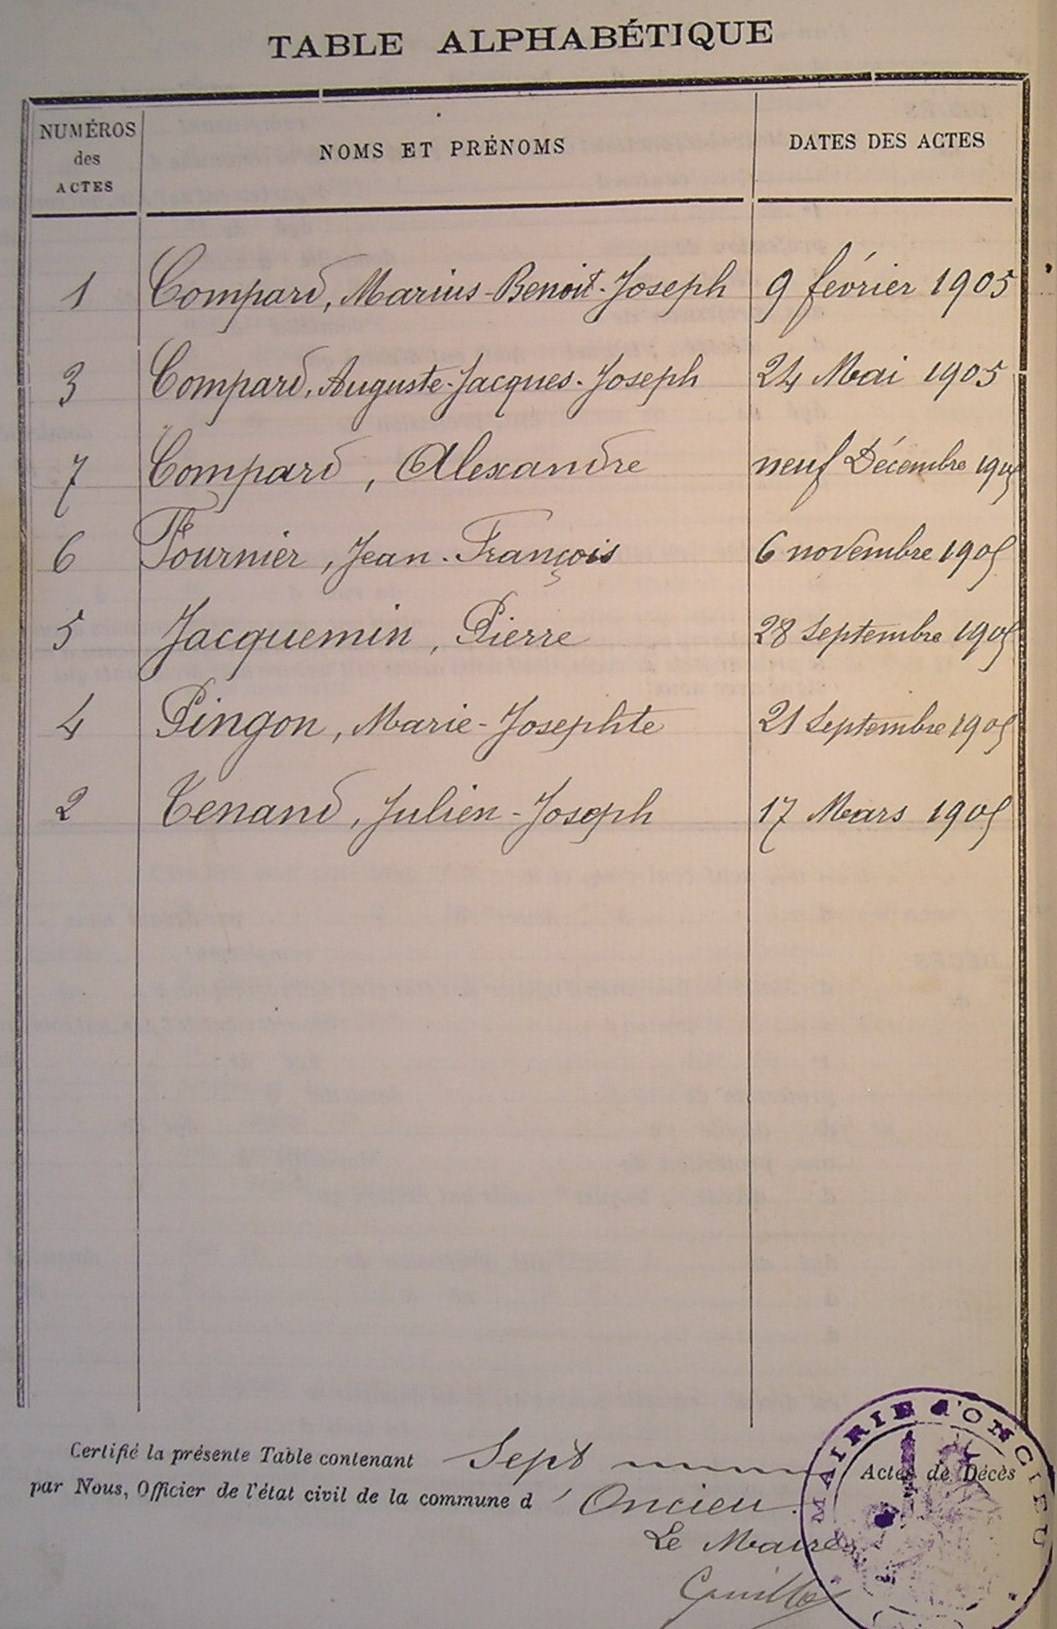 TABLE ALPHABÉTIQUE
NUMÉROS
des
ACTES
NOMS ET PRÉNOMS
DATES DES ACTES
1 Compard, Marius-Benoit-Joseph 9 février 1905
3 Compard, Auguste-Jacques-Joseph 24 Mai 1905
7 Compard, Alexandre neuf Décembre 1905
6 Fournier, Jean-François 6 novembre 1905
5 Jacquemin, Pierre 28 Septembre 1905
4 Pingon, Marie-Josephte 21 Septembre 1905
2 Tenand, Julien-Joseph 17 Mars 1905
Certifié la présente Table contenant Sept Actes de Décès
par Nous, Officier de l'état civil de la commune d'Oncieu.
Le Maire,
MAIRIE d'ONCIEU